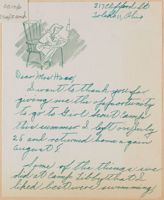 Toledo 11, Ohio
Dear Mrs. Haas,
I want to thank you for
giving me the opportunity
to go to Girl Scout Camp
this summer. I left on July
25 and returned home again
August 5.
Some of the things we
did at Camp Libbey that I
liked best were swimming